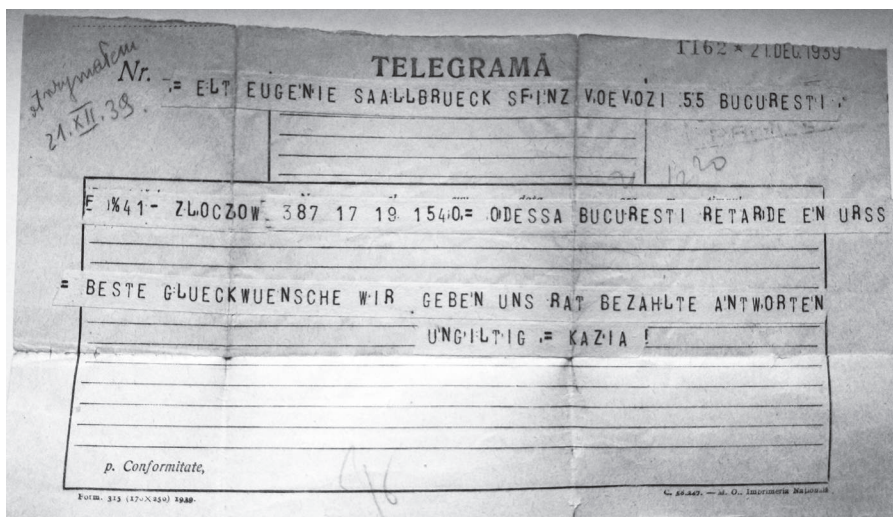 TELEGRAMĂ
1162 * 21 DEC. 1939
Nr.
otrzymałem
21.XII.39.
= ELT EUGENIE SAALLBRUECK SFINZ VOEVOZI 55 BUCURESTI
20
E %41- ZLOCZOW 387 17 19 1540= ODESSA BUCURESTI RETARDE EN URSS
= BESTE GLUECKWUENSCHE WIR GEBEN UNS RAT BEZAHLTE ANTWORTEN
UNGILTIG = KAZIA !
p. Conformitate,
Form. 313 (170X250) 1939.
— M. O., Imprimeria Națională